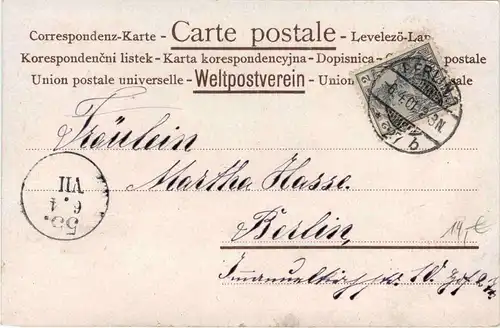 Correspondenz-Karte - Carte postale - Levelező-La
Korespondenční listek - Karta korespondencyjna - Dopisnica - postale
Union postale universelle - Weltpostverein - Union
BERLIN
6.4.01
b
Fräulein
Martha Hasse.
Berlin,
14,-€
Immanuelkirchstr. 10
55.
6.4
VII